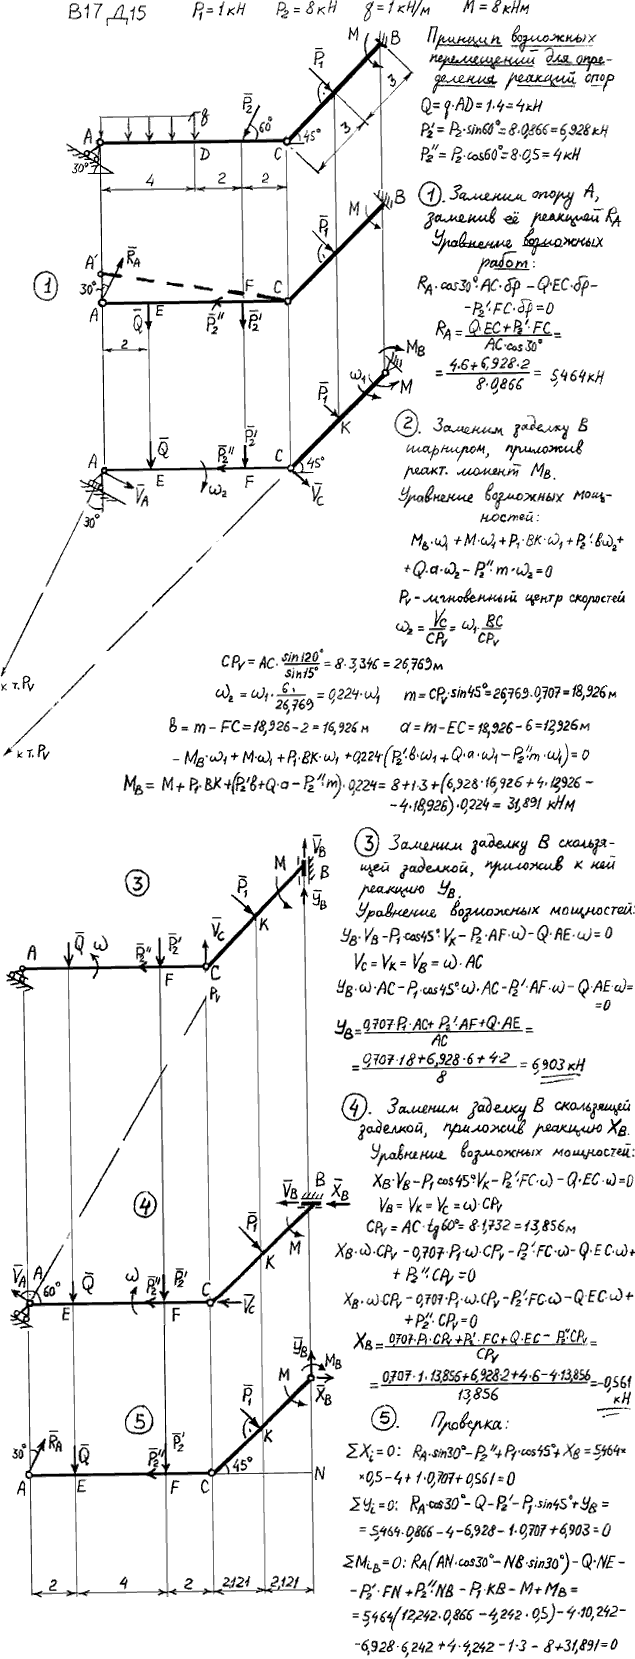 В17 Д15 P̄₁=1кН P₂=8кН q=1кН/м M=8кНм
Принцип возможных
перемещений для опре-
деления реакций опор
Q=q·AD=1·4=4кН
P₂'=P₂·sin60°=8·0,866=6,928кН
P₂''=P₂·cos60°=8·0,5=4кН
M B P̄₁ 3 3
A q P̄₂ 60° D C 45° 30°
4 2 2
① Заменим опору A,
заменив её реакцией R_A
Уравнение возможных
работ:
R_A·cos30°·AC·δφ-Q·EC·δφ-
-P₂'·FC·δφ=0
R_A=(Q·EC+P₂'·FC)/(AC·cos30°)=
=(4·6+6,928·2)/(8·0,866)=5,464кН
①
A' R̄_A 30° A Q̄ E P̄₂'' F P̄₂' C P̄₁ M B
2
② Заменим заделку B
шарниром, приложив
реакт. момент M_B.
Уравнение возможных мощ-
ностей:
M_B·ω₁+M·ω₁+P₁·BK·ω₁+P₂'·bω₂+
+Q·a·ω₂-P₂''·m·ω₂=0
P_V-мгновенный центр скоростей
ω₂=V_C/CP_V=ω₁·BC/CP_V
M_B ω₁ M P̄₁ K
A Q̄ E P̄₂'' P̄₂' F C 45° V̄_A ω₂ V̄_C 30°
к т. P_V
к т. P_V
CP_V=AC·sin120°/sin15°=8·3,346=26,769м
ω₂=ω₁·6/26,769=0,224·ω₁ m=CP_V·sin45°=26,769·0,707=18,926м
b=m-FC=18,926-2=16,926м a=m-EC=18,926-6=12,926м
-M_B·ω₁+M·ω₁+P₁·BK·ω₁+0,224(P₂'·b·ω₁+Q·a·ω₁-P₂''·m·ω₁)=0
M_B=M+P₁·BK+(P₂'b+Q·a-P₂''·m)·0,224=8+1·3+(6,928·16,926+4·12,926-
-4·18,926)·0,224=31,891 кНм
③ Заменим заделку B скользя-
щей заделкой, приложив к ней
реакцию Y_B.
Уравнение возможных мощностей:
Y_B·V_B-P₁·cos45°·V_K-P₂·AF·ω-Q·AE·ω=0
V_C=V_K=V_B=ω·AC
Y_B·ω·AC-P₁·cos45°·ω·AC-P₂'·AF·ω-Q·AE·ω=
=0
Y_B=(0,707·P₁·AC+P₂'·AF+Q·AE)/AC=
=(0,707·1·8+6,928·6+4·2)/8=6,903кН
③
V̄_B M B P̄₁ Ȳ_B K V̄_C
A Q̄ ω P̄₂'' P̄₂' F C P_V
④. Заменим заделку B скользящей
заделкой, приложив реакцию X_B.
Уравнение возможных мощностей:
X_B·V_B-P₁cos45°V_K-P₂'·FC·ω-Q·EC·ω=0
V_B=V_K=V_C=ω·CP_V
CP_V=AC·tg60°=8·1,732=13,856м
X_B·ω·CP_V-0,707·P₁·ω·CP_V-P₂'·FC·ω-Q·EC·ω+
+P₂''·CP_V=0
X_B·ω·CP_V-0,707·P₁·ω·CP_V-P₂'·FC·ω-Q·EC·ω+
+P₂''·CP_V=0
X_B=(0,707·P₁·CP_V+P₂'·FC+Q·EC-P₂''·CP_V)/CP_V=
=(0,707·1·13,856+6,928·2+4·6-4·13,856)/13,856=-0,561
кН
④
B V̄_B X̄_B P̄₁ M K
V̄_A A 60° Q̄ ω P̄₂'' P̄₂' E F C V̄_C
⑤. Проверка:
ΣX_i=0: R_A·sin30°-P₂''+P₁·cos45°+X_B=5,464×
×0,5-4+1·0,707+0,561=0
ΣY_i=0: R_A·cos30°-Q-P₂'-P₁·sin45°+Y_B=
=5,464·0,866-4-6,928-1·0,707+6,903=0
ΣM_iB=0: R_A(AN·cos30°-NB·sin30°)-Q·NE-
-P₂'·FN+P₂''NB-P₁·KB-M+M_B=
=5,464(12,242·0,866-4,242·0,5)-4·10,242-
-6,928·6,242+4·4,242-1·3-8+31,891=0
⑤
Ȳ_B M M_B X̄_B P̄₁ K
30° R̄_A Q̄ P̄₂'' P̄₂' A E F C 45° N
2 4 2 2,121 2,121